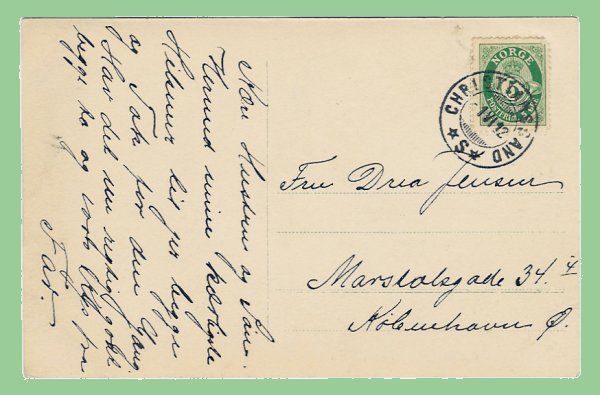 Kære Hustru og Søn.
Hermed mine kærligste
Hilsner til jer begge
og Tak for den Gang
Hav det nu rigtig godt
begge to og vort Kys fra
Far.
NORGE
CHRISTIANSSAND * S *
12
Fru Drea Jensen
Marstalsgade 34. 4
København Ø.